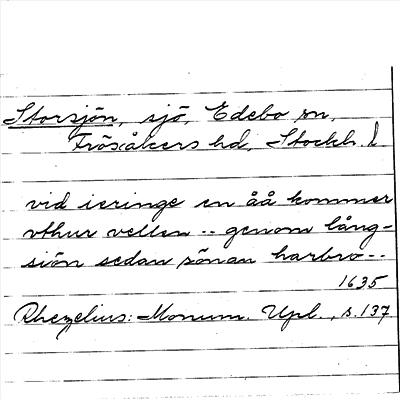 Storsjön, sjö, Edebo sn,
Frösåkers hd, Stockh. l
vid ieringe en åå kommer
vthur vellen .. genom lång-
siön sedan sönan harbro ..
1635
Rhezelius: Monum. Upl., s. 137